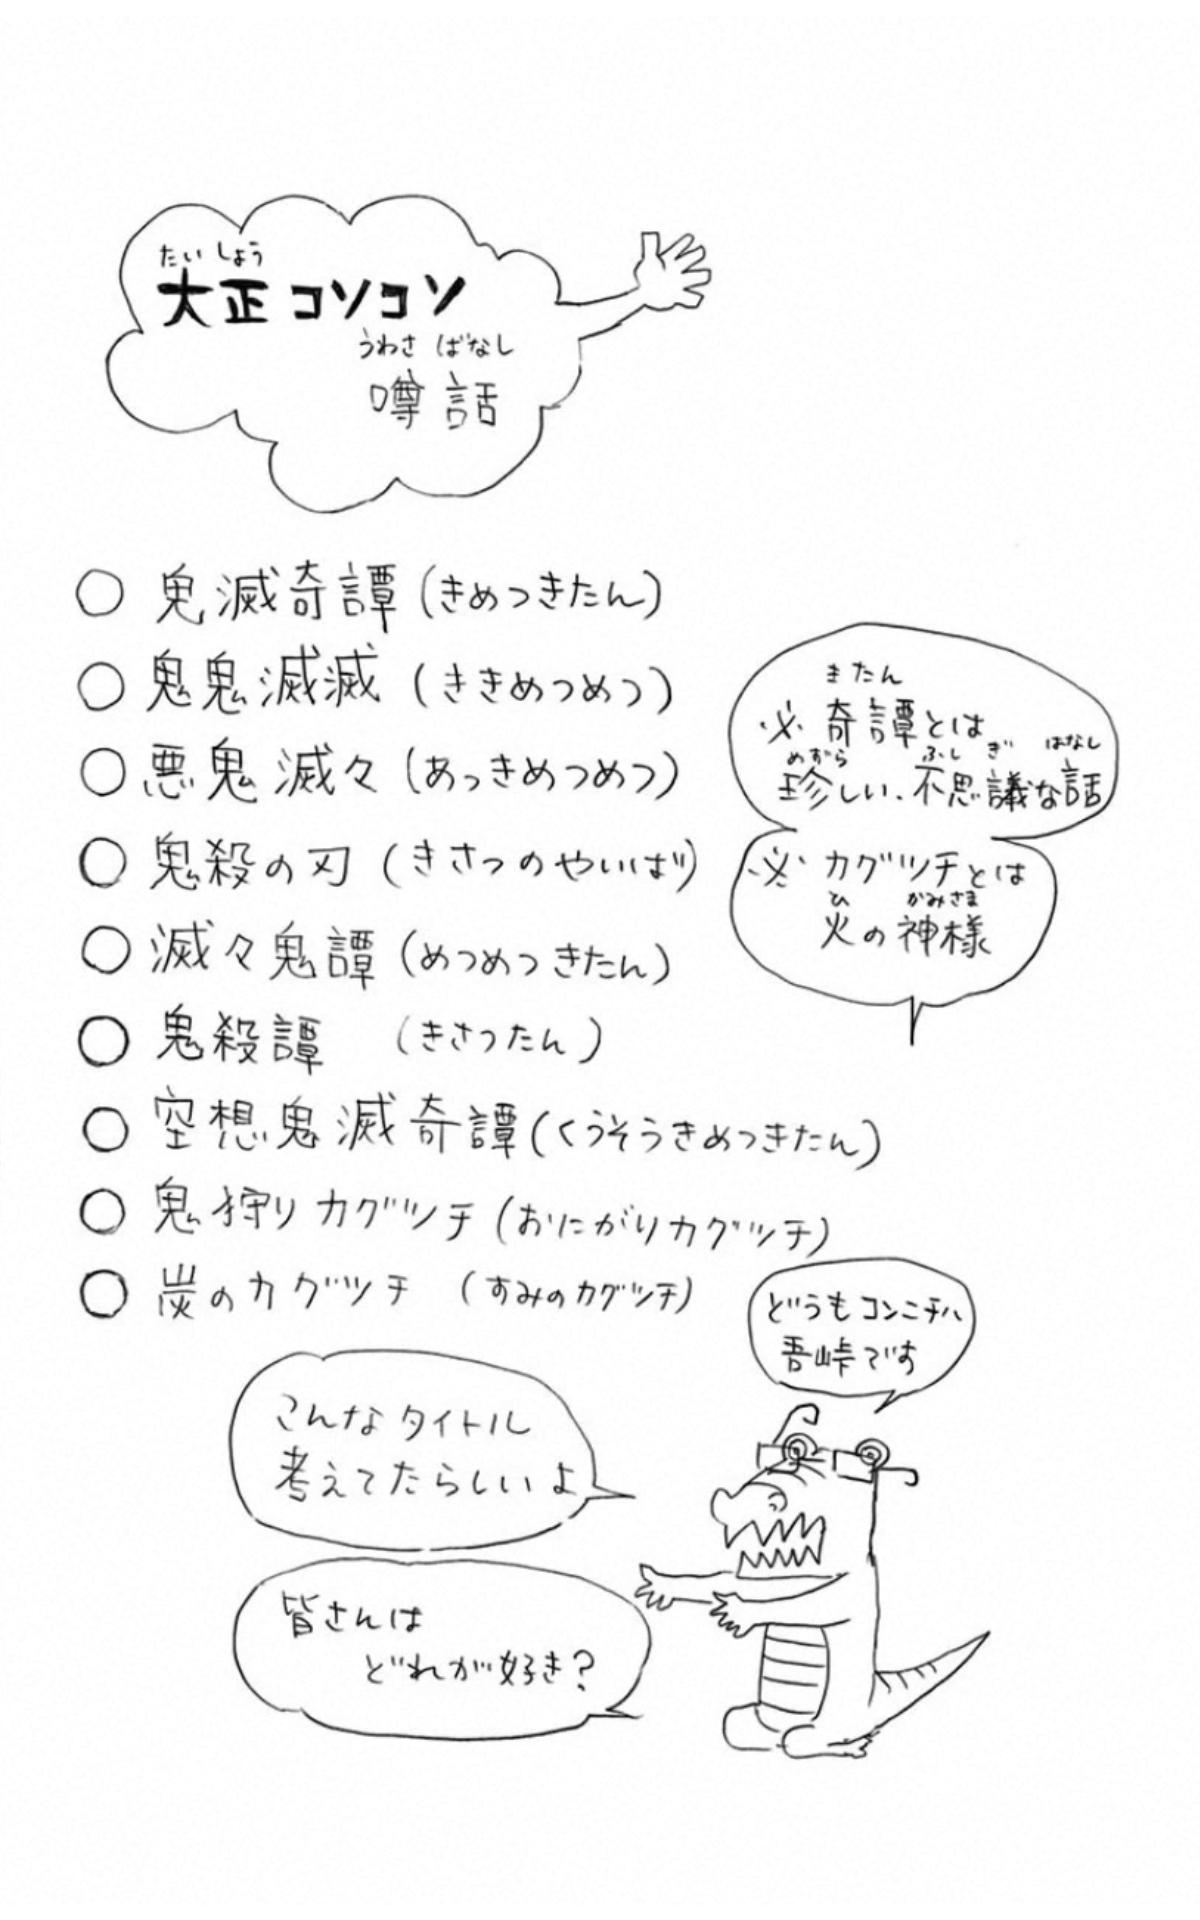 たいしょう
大正コソコソ
うわさ ばなし
噂話
○ 鬼滅奇譚(きめつきたん)
○ 鬼鬼滅滅(ききめつめつ)
○ 悪鬼滅々(あっきめつめつ)
○ 鬼殺の刃(きさつのやいば)
○ 滅々鬼譚(めつめつきたん)
○ 鬼殺譚 (きさつたん)
○ 空想鬼滅奇譚(くうそうきめつきたん)
○ 鬼狩りカグツチ(おにがりカグツチ)
○ 炭のカグツチ (すみのカグツチ)
きたん
※ 奇譚とは
めずら ふしぎ はなし
珍しい、不思議な話
※ カグツチとは
ひ かみさま
火の神様
どうもコンニチハ
吾峠です
こんなタイトル
考えてたらしいよ
皆さんは
どれが好き?